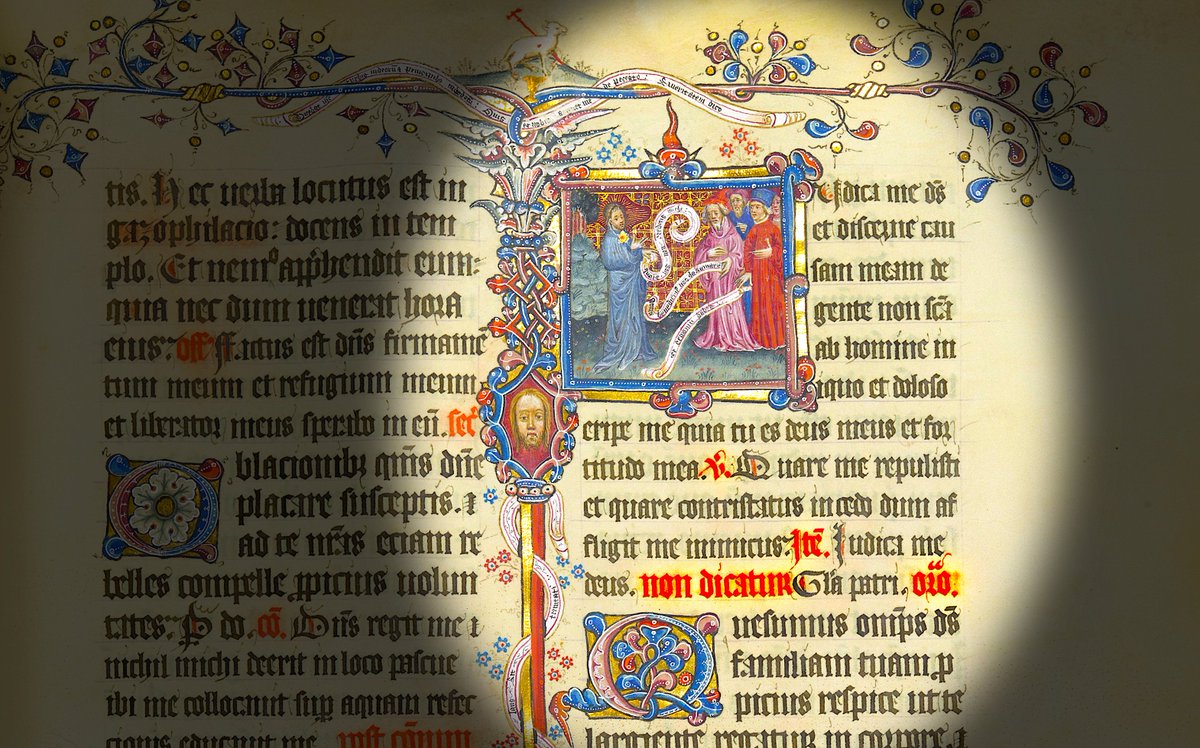 tis. Hec uerba locutus est in
gazophilacio: docens in tem
plo. Et nemº app̄hendit eum:
quia nec dum uenerat hora
eius: off̄ Factus est dn̄s firmame
tum meum et refugium meum
et liberator meus sperabo in eū. sec̄
Oblacionibꝫ qm̄s dn̄e
placare susceptis. ⁊
ad te nr̄as eciam re
belles compelle ꝓpicius uolun
tates: P do. cō. Dn̄s regit me ⁊
nichil michi deerit in loco pascue
ibi me collocauit sup̄ aquam refec
cionis educauit me. post cōmun
Iudica me ds̄
et discerne cau
sam meam de
gente non scā
ab homine in
iquo et doloso
eripe me quia tu es deus meus et for
titudo mea. V. Quare me repulisti
et quare contristatus incedo dum af
fligit me inimicus: Itē. Iudica me
deus. non dicatur Gl̄a patri. orō.
Quesumus omp̄s ds̄
familiam tuam ꝓ
picius respice ut te
largiente regatur in corpore. ⁊